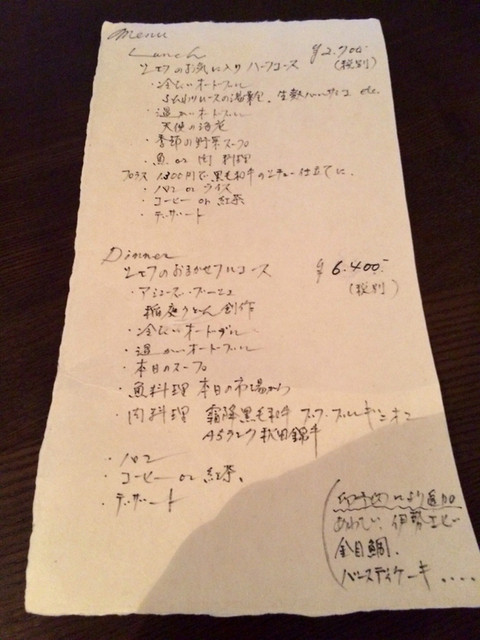 Menu
Lunch ¥2,700-
シェフのお気に入りハーフコース (税別)
・冷たいオードブル
生ハム etc.
・温かいオードブル
天使の海老
・季節の野菜スープ
・魚 or 肉 料理
プラス 1,800円で黒毛和牛のシチュー仕立てに。
・パン or ライス
・コーヒー or 紅茶
・デザート
Dinner
シェフのおまかせフルコース ¥6,400-
・アミューズ・ブーシュ (税別)
稲庭うどん 創作
・冷たいオードブル
・温かいオードブル
・本日のスープ
・魚料理 本日の市場から
・肉料理 霜降黒毛和牛 ブフ・ブルギニオン
A5ランク 秋田錦牛
・パン
・コーヒー or 紅茶、
・デザート
により追加
あわび、伊勢エビ
金目鯛、
バースデイケーキ ....